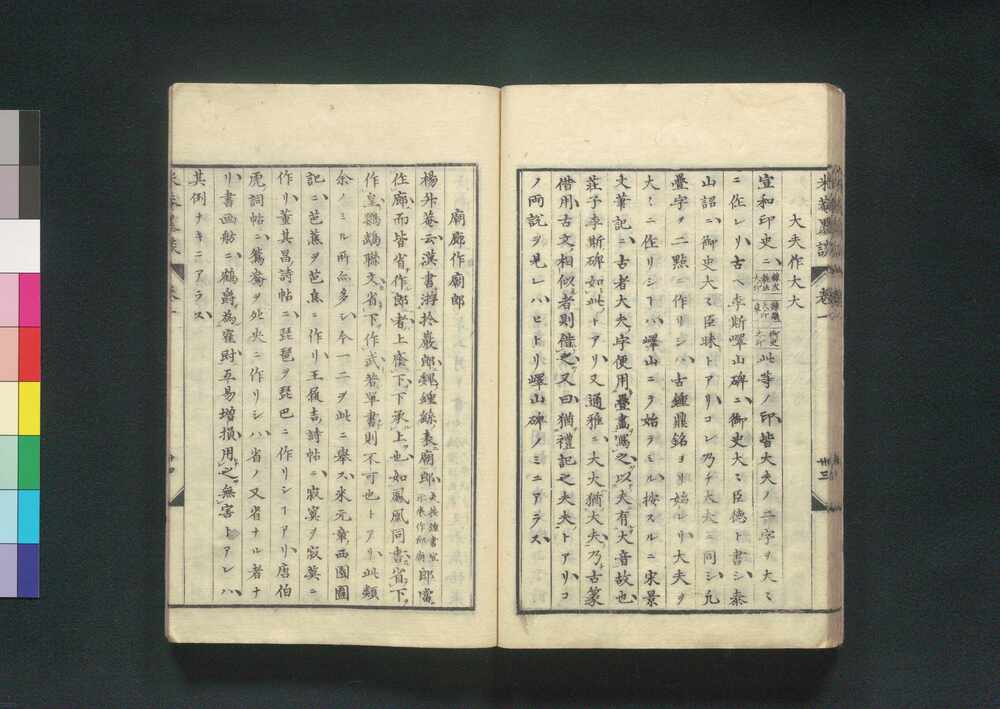 米菴墨談 卷一 卅三
大夫作大大
宣和印史ニ此等ノ印皆大夫ノ二字ヲ大ミ
ニ作レリ古ヘ李斯嶧山碑ニ御史大ミ臣徳ト書シ泰
山詔ニ御史大ミ臣昧トアリコレ乃チ大大ニ同シ凡
疊字ヲ二點ニ作リシハ古鐘鼎銘ヨリ始レリ大夫ヲ
大ミニ作リシトハ嶧山ニヲ始ラミル按スルニ宋景
文筆記ニ古者大夫字便用疊畫寫之以夫有大音故也
荘子李斯碑如此トアリ又通雅ニ大大猶大夫乃古篆
借用古文相似者則借之又曰猶禮記之夫夫トアリコ
ノ両説ヲ見レハヒトリ嶧山碑ノミニアラス
廟廊作庿郎
楊升菴云漢書游於巖郎魏纏絲表廟郎 郎當
作廊而皆省作郎者上蒙下下承上也如鳳凰同書省下
作皇鸚鵡聯文省下作武若單書則不可也トアリ此類
余ノミル所尒多シ今一二ヲ此ニ舉ス米元章西園圖
記ニ芭蕉ヲ芭焦ニ作リ王履吉詩帖ニ寂寞ヲ寂莫ニ
作リ董其昌詩帖ニ琵琶ヲ琵巴ニ作リシトアリ唐伯
虎詞帖ニ鴛鴦ヲ夗央ニ作リシハ省ノ又省ナル者ナ
リ書画舫ニ鶴爵為寉財互易増損用之無害トアレハ
其例ナキニアラス